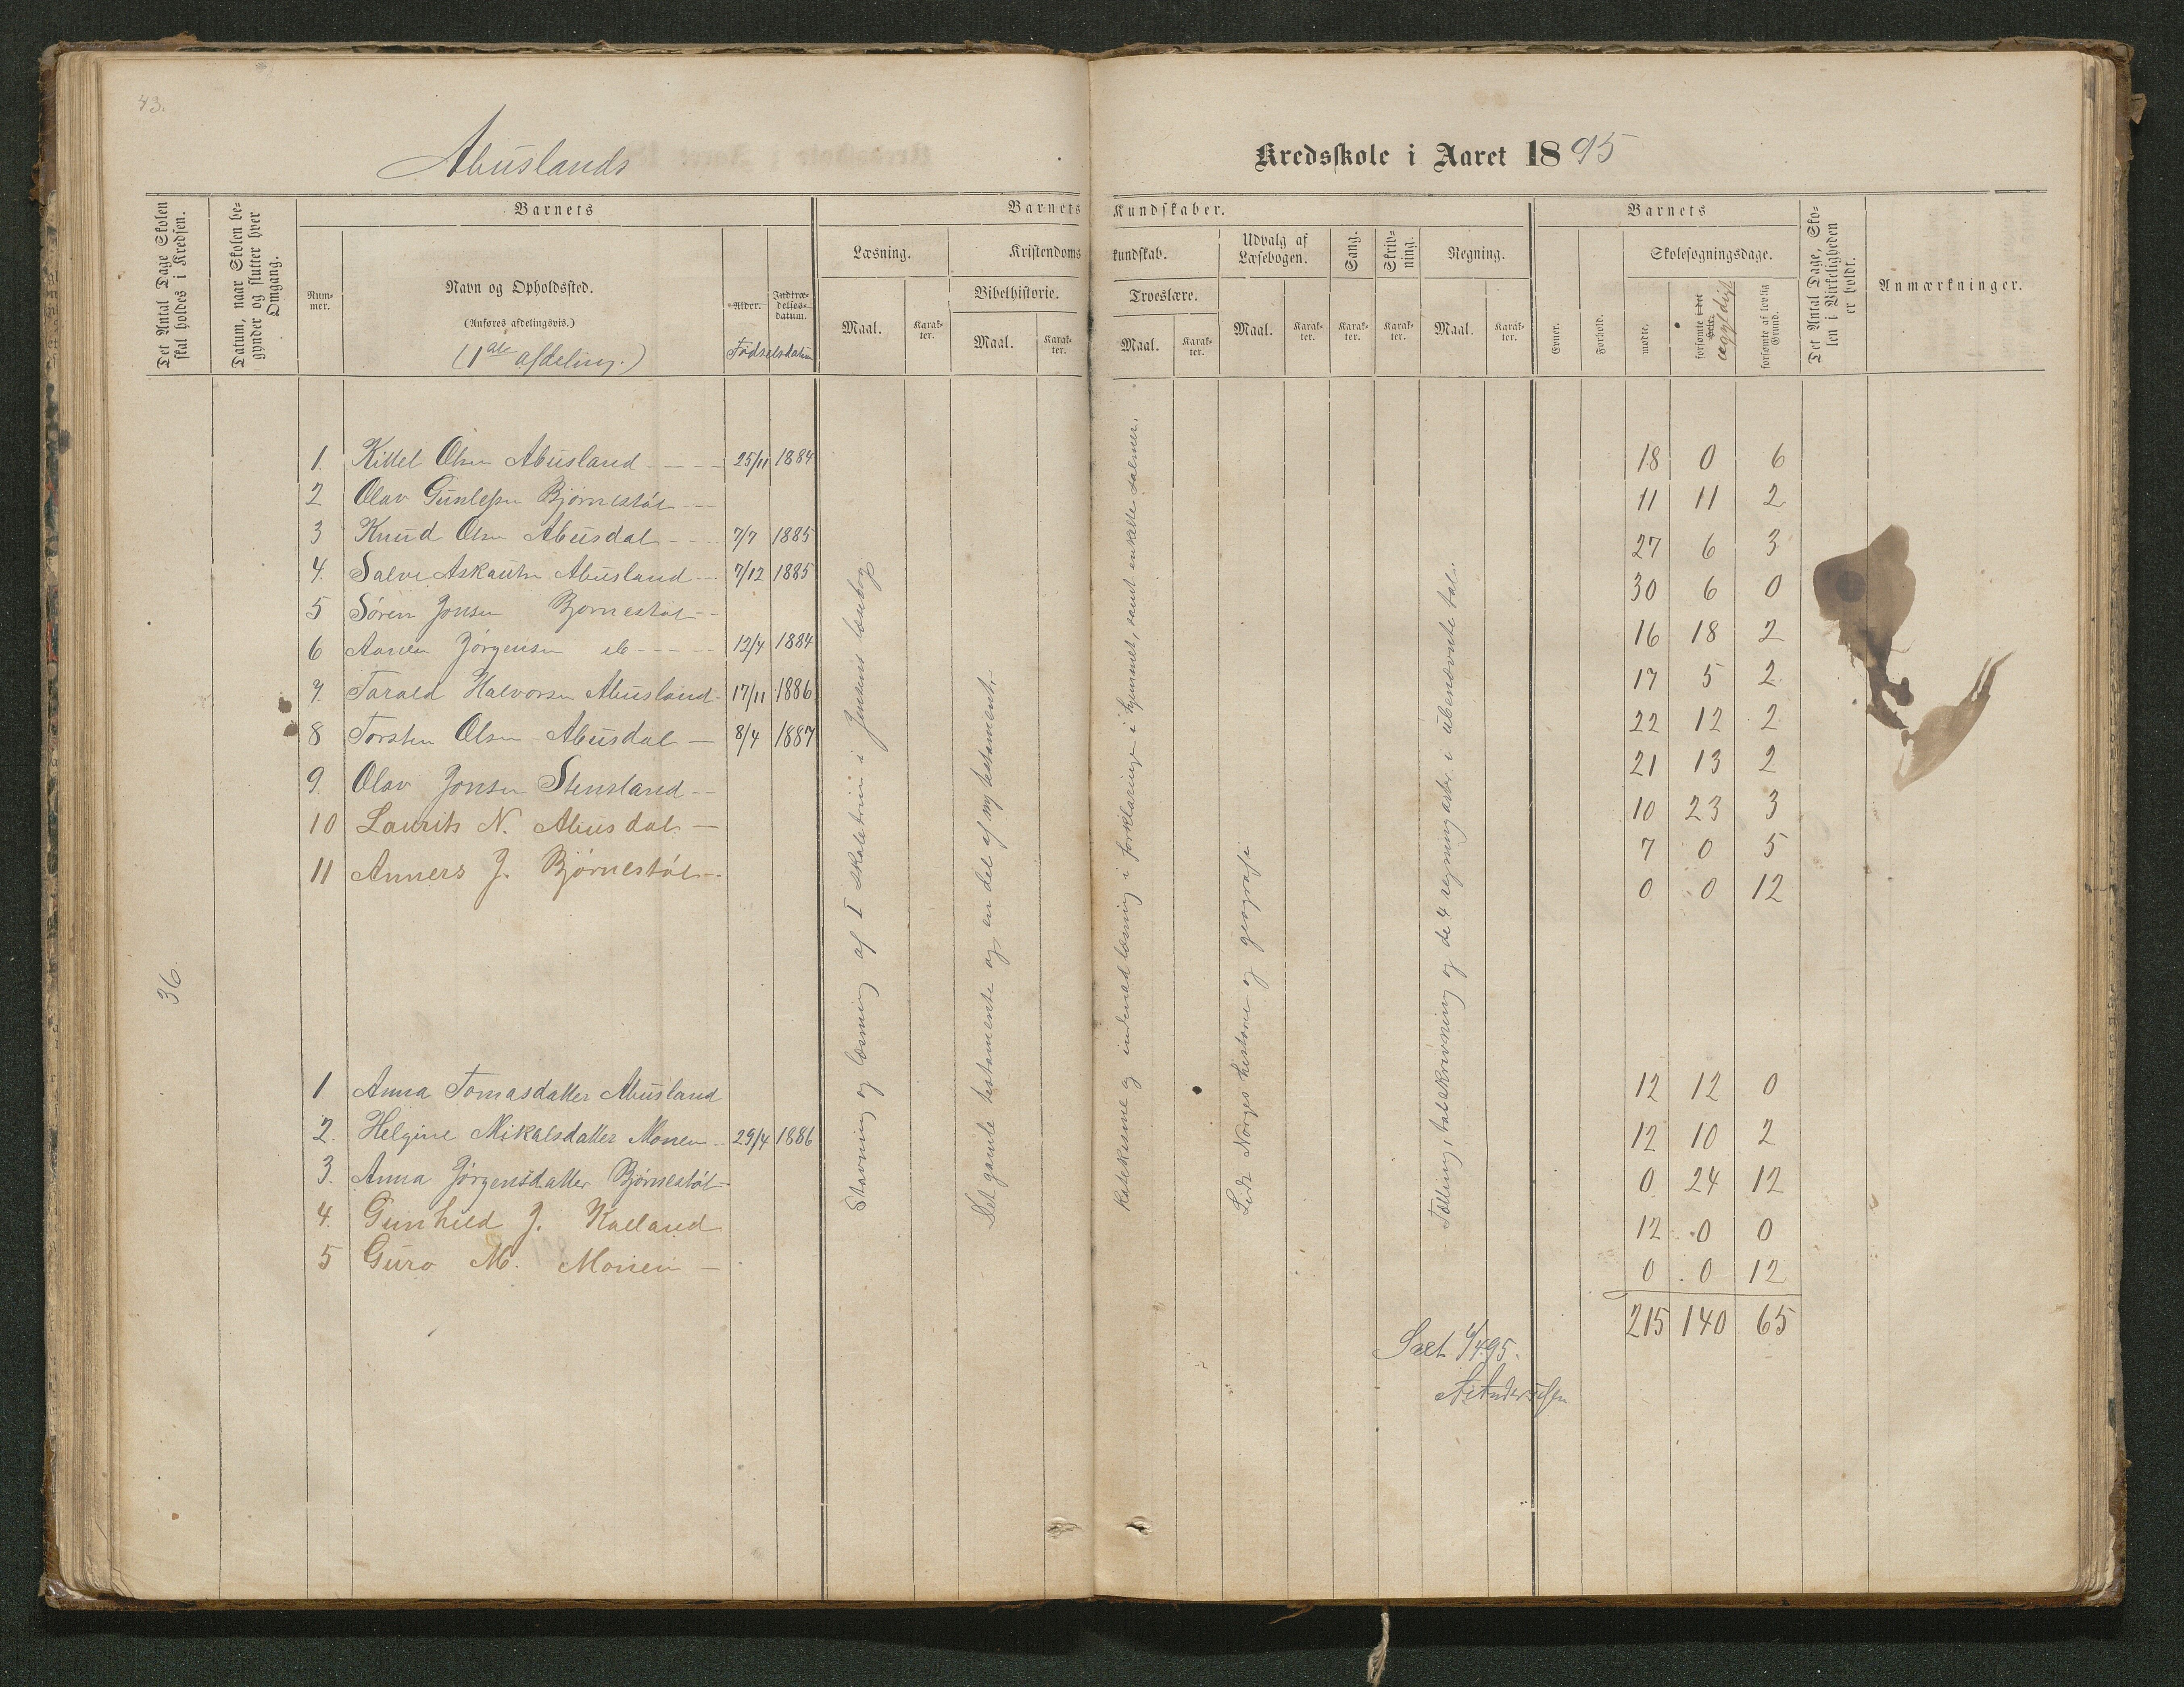 43.
Abuslands
Kredsskole i Aaret 1895
Det Antal Dage Skolen skal holdes i Kredsen.
Datum, naar Skolen begynder og slutter hver Omgang.
Barnets
Nummer.
Navn og Opholdssted.
(Anføres afdelingsvis.)
(1ste afdeling.)
Alder.
Indtrædelsesdatum.
Fødselsdatum
Barnets Kundskaber.
Læsning.
Maal.
Karakter.
Kristendomskundskab.
Bibelhistorie.
Maal.
Karakter.
Troeslære.
Maal.
Karakter.
Udvalg af Læsebogen.
Maal.
Karakter.
Sang.
Karakter.
Skrivning.
Karakter.
Regning.
Maal.
Karakter.
Barnets
Evner.
Forhold.
Skolesøgningsdage.
mødte.
forsømte i det Hele.
ugyldigt
forsømte af lovlig Grund.
Det Antal Dage, Skolen i Virkeligheden er holdt.
Anmærkninger.
1. Kittel Olsen Abusland - - - - 25/11 1884 18 0 6
2 Olav Gunlefsen Bjørnestøl - - - 11 11 2
3 Knud Olsen Abusdal - - - 7/7 1885 27 6 3
4. Salve Askautsen Abusland - - 7/12 1885 30 6 0
5 Søren Jonsen Bjørnestøl - - 16 18 2
6 Jørgensen do - - - - 12/4 1884 17 5 2
7. Tarald Halvorsen Abusland - 17/11 1886 22 12 2
8 Torsten Olsen Abusdal - 8/4 1887 21 13 2
9. Olav Jonsen Stensland - - 10 23 3
10 Laurits N. Abusdal - 7 0 5
11 Anners J. Bjørnestøl - - 0 0 12
36.
1 Anna Tomasdatter Abusland 12 12 0
2. Helgine Mikalsdatter Monen - - 29/4 1886 12 10 2
3. Anna Jørgensdatter Bjørnestøl - 0 24 12
4. Gunhild J. Kalland 12 0 0
5 Guro M. Monen - 0 0 12
215 140 65
Stavning og læsning af I skoletrin i Jensens læsebog
Det gamle testamente og en del af ny testament.
Katekisme og indenadlæsning i forklaringen i hjemmet, samt enkelte salmer.
Lidt Norges historie og geografi
Tælling, talskrivning og de 4 regningsarter i ubenævnte tal.
Seet 6/4 95.
A. Andersen